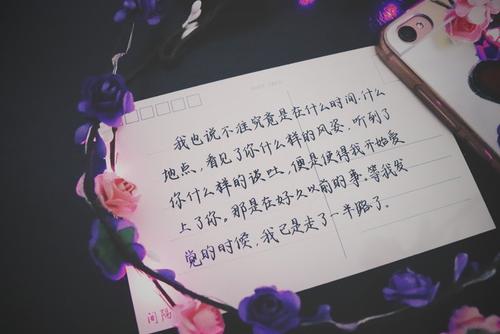 我也说不准究竟是在什么时间.什么
地点，看见了你什么样的风姿.听到了
你什么样的谈吐，便是使得我开始爱
上了你。那是在好久以前的事。等我发
觉的时候，我已是走了一半路了.
间隔